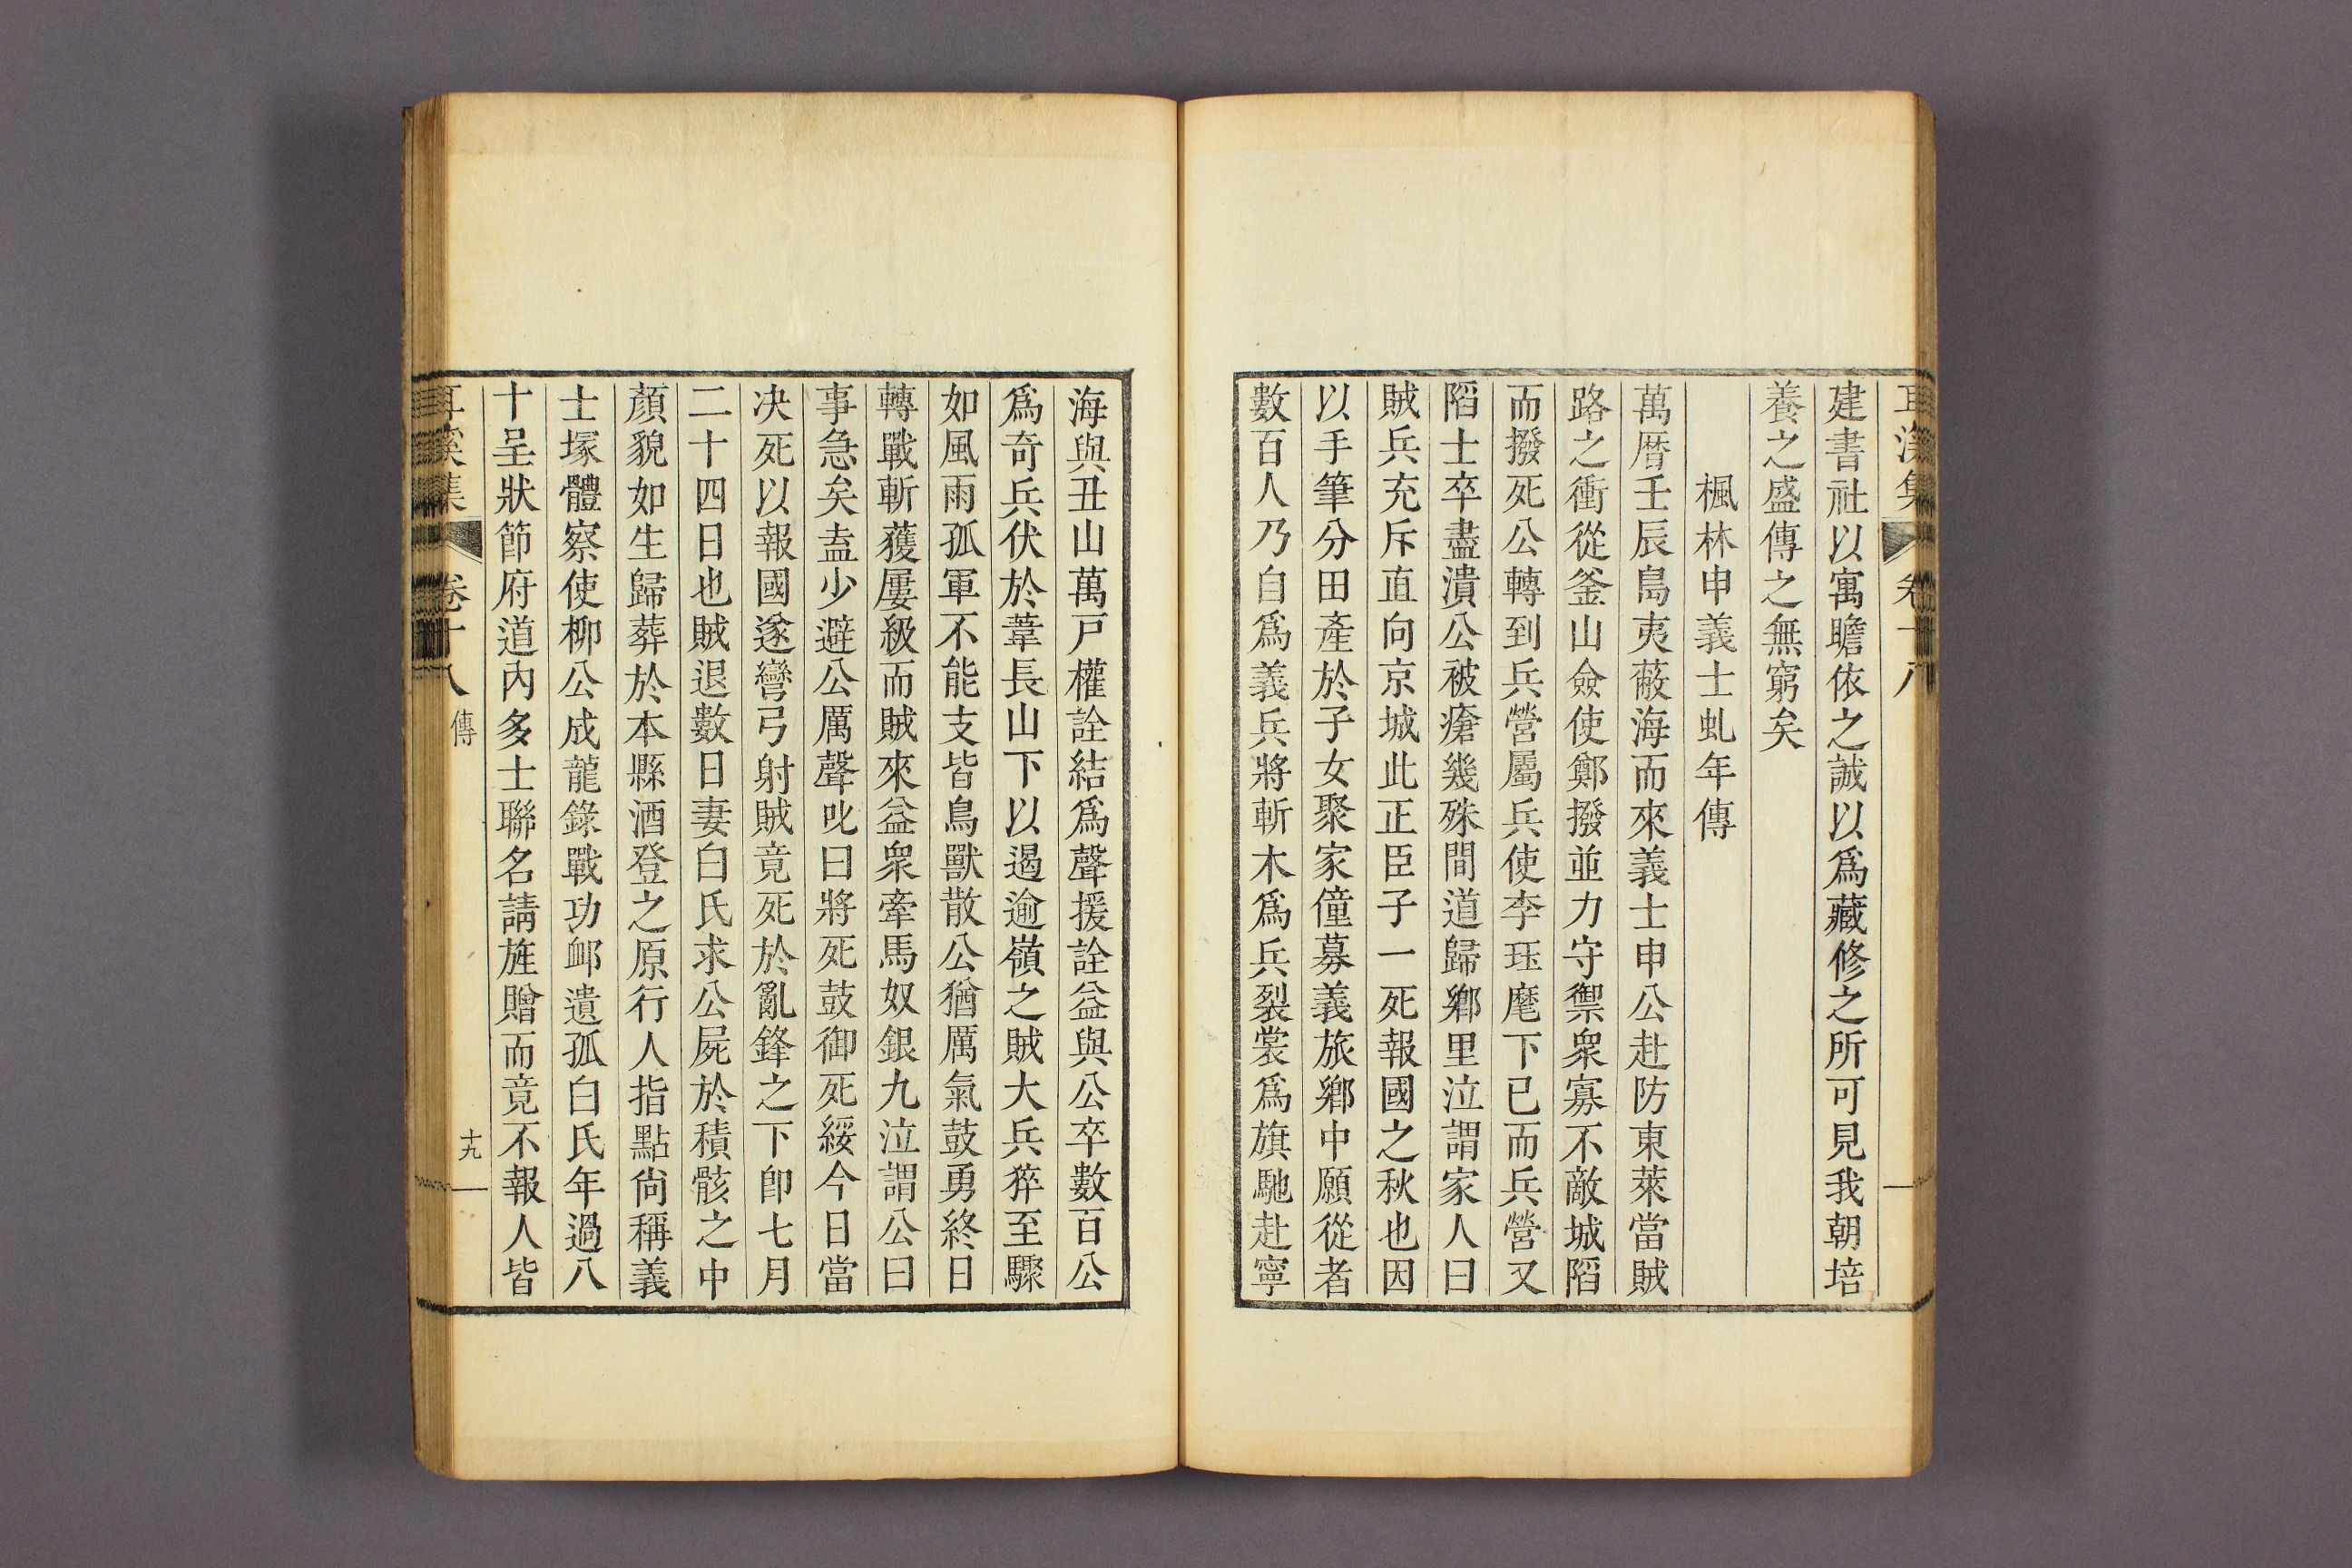 建書社以寓瞻依之誠以爲藏修之所可見我朝培
養之盛傳之無窮矣
楓林申義士虬年傳
萬暦壬辰島夷蔽海而來義士申公赴防東萊當賊
路之衝從釜山僉使鄭撥並力守禦衆寡不敵城陷
而撥死公轉到兵營屬兵使李珏麾下已而兵營又
陷士卒盡潰公被瘡幾殊間道歸鄕里泣謂家人曰
賊兵充斥直向京城此正臣子一死報國之秋也因
以手筆分田產於子女聚家僮募義旅鄕中願從者
數百人乃自爲義兵將斬木爲兵裂裳爲旗馳赴寧
海與丑山萬戶權詮結爲聲援詮益與公卒數百公
爲奇兵伏於葦長山下以遏逾嶺之賊大兵猝至驟
如風雨孤軍不能支皆鳥獸散公猶厲氣鼓勇終日
轉戰斬獲屢級而賊來益衆牽馬奴銀九泣謂公曰
事急矣盍少避公厲聲叱曰將死鼓御死綏今日當
决死以報國遂彎弓射賊竟死於亂鋒之下卽七月
二十四日也賊退數日妻白氏求公屍於積骸之中
顏貌如生歸葬於本縣酒登之原行人指點尙稱義
士塚體察使柳公成龍錄戰功卹遺孤白氏年過八
十呈狀節府道內多士聯名請旌贈而竟不報人皆
卷十八 傳 十九